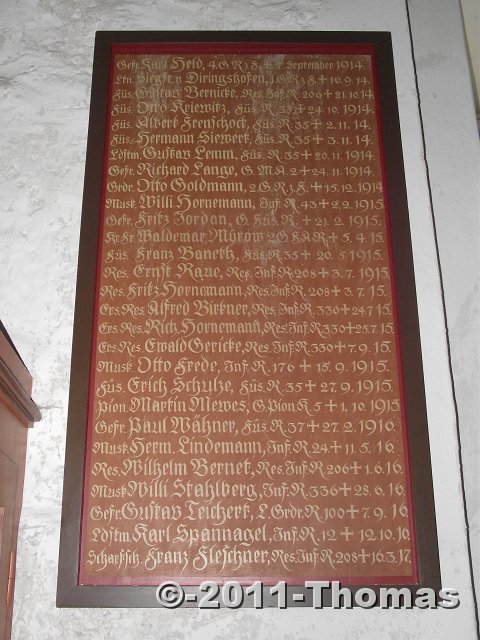 Gefr. Karl Held, 4.G.R.z.F.+ 9. September 1914.
Ltn. Siegfr. v. Diringshofen, 1.G.R.z.F.+ 16.9.14.
Füs. Gustav Bernicke, Res. Inf. R. 206 + 21.10.14.
Füs. Otto Kriewitz, Füs. R. 35 + 24.10. 1914.
Füs. Albert Frenschock, Füs. R. 35 + 2.11. 14.
Füs. Hermann Siewert, Füs. R. 35 + 3.11. 14.
Ldstm. Gustav Lemm, Füs. R. 35 + 20.11. 1914.
Gefr. Richard Lange, G.M.A. 2 + 24.11. 1914.
Grdr. Otto Goldmann, 2.G.R.z.F. + 15.12. 1914
Musk. Willi Hornemann, Inf. R. 43 + 2.2. 1915.
Gefr. Fritz Jordan, G. Füs. R. + 21.2. 1915.
Kr. Fr. Waldemar Mürow 2.G.F.A.R + 5.4.15.
Füs. Franz Banertz, Füs. R. 35 + 20.5. 1915.
Res. Ernst Raue, Res. Inf. R. 208 + 3.7. 1915.
Res. Fritz Hornemann, Res. Inf. R. 208 + 3.7. 15.
Ers. Res. Alfred Birkner, Res. Inf. R. 330 + 24.7.15.
Ers. Res. Rich. Hornemann, Res. Inf. R. 330 + 25.7.15.
Ers. Res. Ewald Gericke, Res. Inf. R. 330 + 7.9. 15.
Musk. Otto Frede, Inf. R. 176 + 15.9. 1915.
Füs. Erich Schulze, Füs. R. 35 + 27.9. 1915.
Pion. Martin Mewes, G. Pion. K. 5 + 1.10. 1915
Gefr. Paul Wähner, Füs. R. 37 + 27.2. 1916.
Musk. Herm. Lindemann, Inf. R. 24 + 11.5. 16.
Res. Wilhelm Bernet, Res. Inf. R. 206 + 1.6.16.
Musk. Willi Stahlberg, Inf. R. 336 + 28.6.16.
Gefr. Gustav Teichert, L. Grdr. R. 100 + 7.9. 16.
Ldstm. Karl Spannagel, Inf. R. 12 + 12.10.16.
Scharfsch. Franz Fleschner, Res. Inf. R. 208 + 16.3.17.
©-2011-Thomas